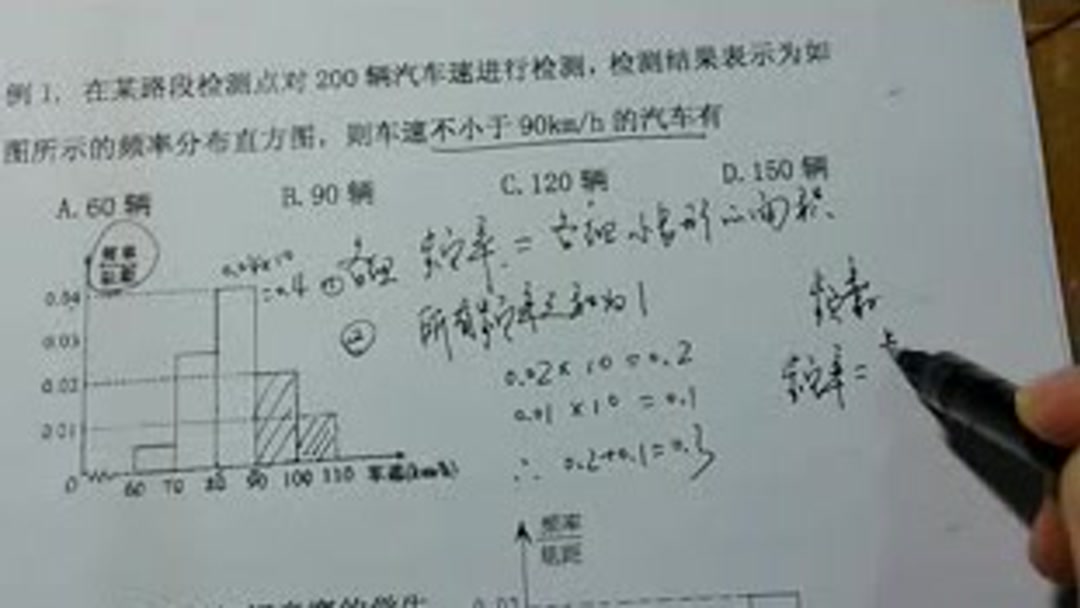 例 1. 在某路段检测点对 200 辆汽车速进行检测，检测结果表示为如
图所示的频率分布直方图，则车速不小于 90km/h 的汽车有
A. 60 辆 B. 90 辆 C. 120 辆 D. 150 辆
频率
组距
0.04×10
=0.4
① 各组 频率 = 各组小矩形的面积
② 所有频率之和为1
0.02×10=0.2
0.01×10=0.1
∴ 0.2+0.1=0.3
频数
频率=
0.04
0.03
0.02
0.01
0 60 70 80 90 100 110 车速(km/h)
频率
组距
0.03